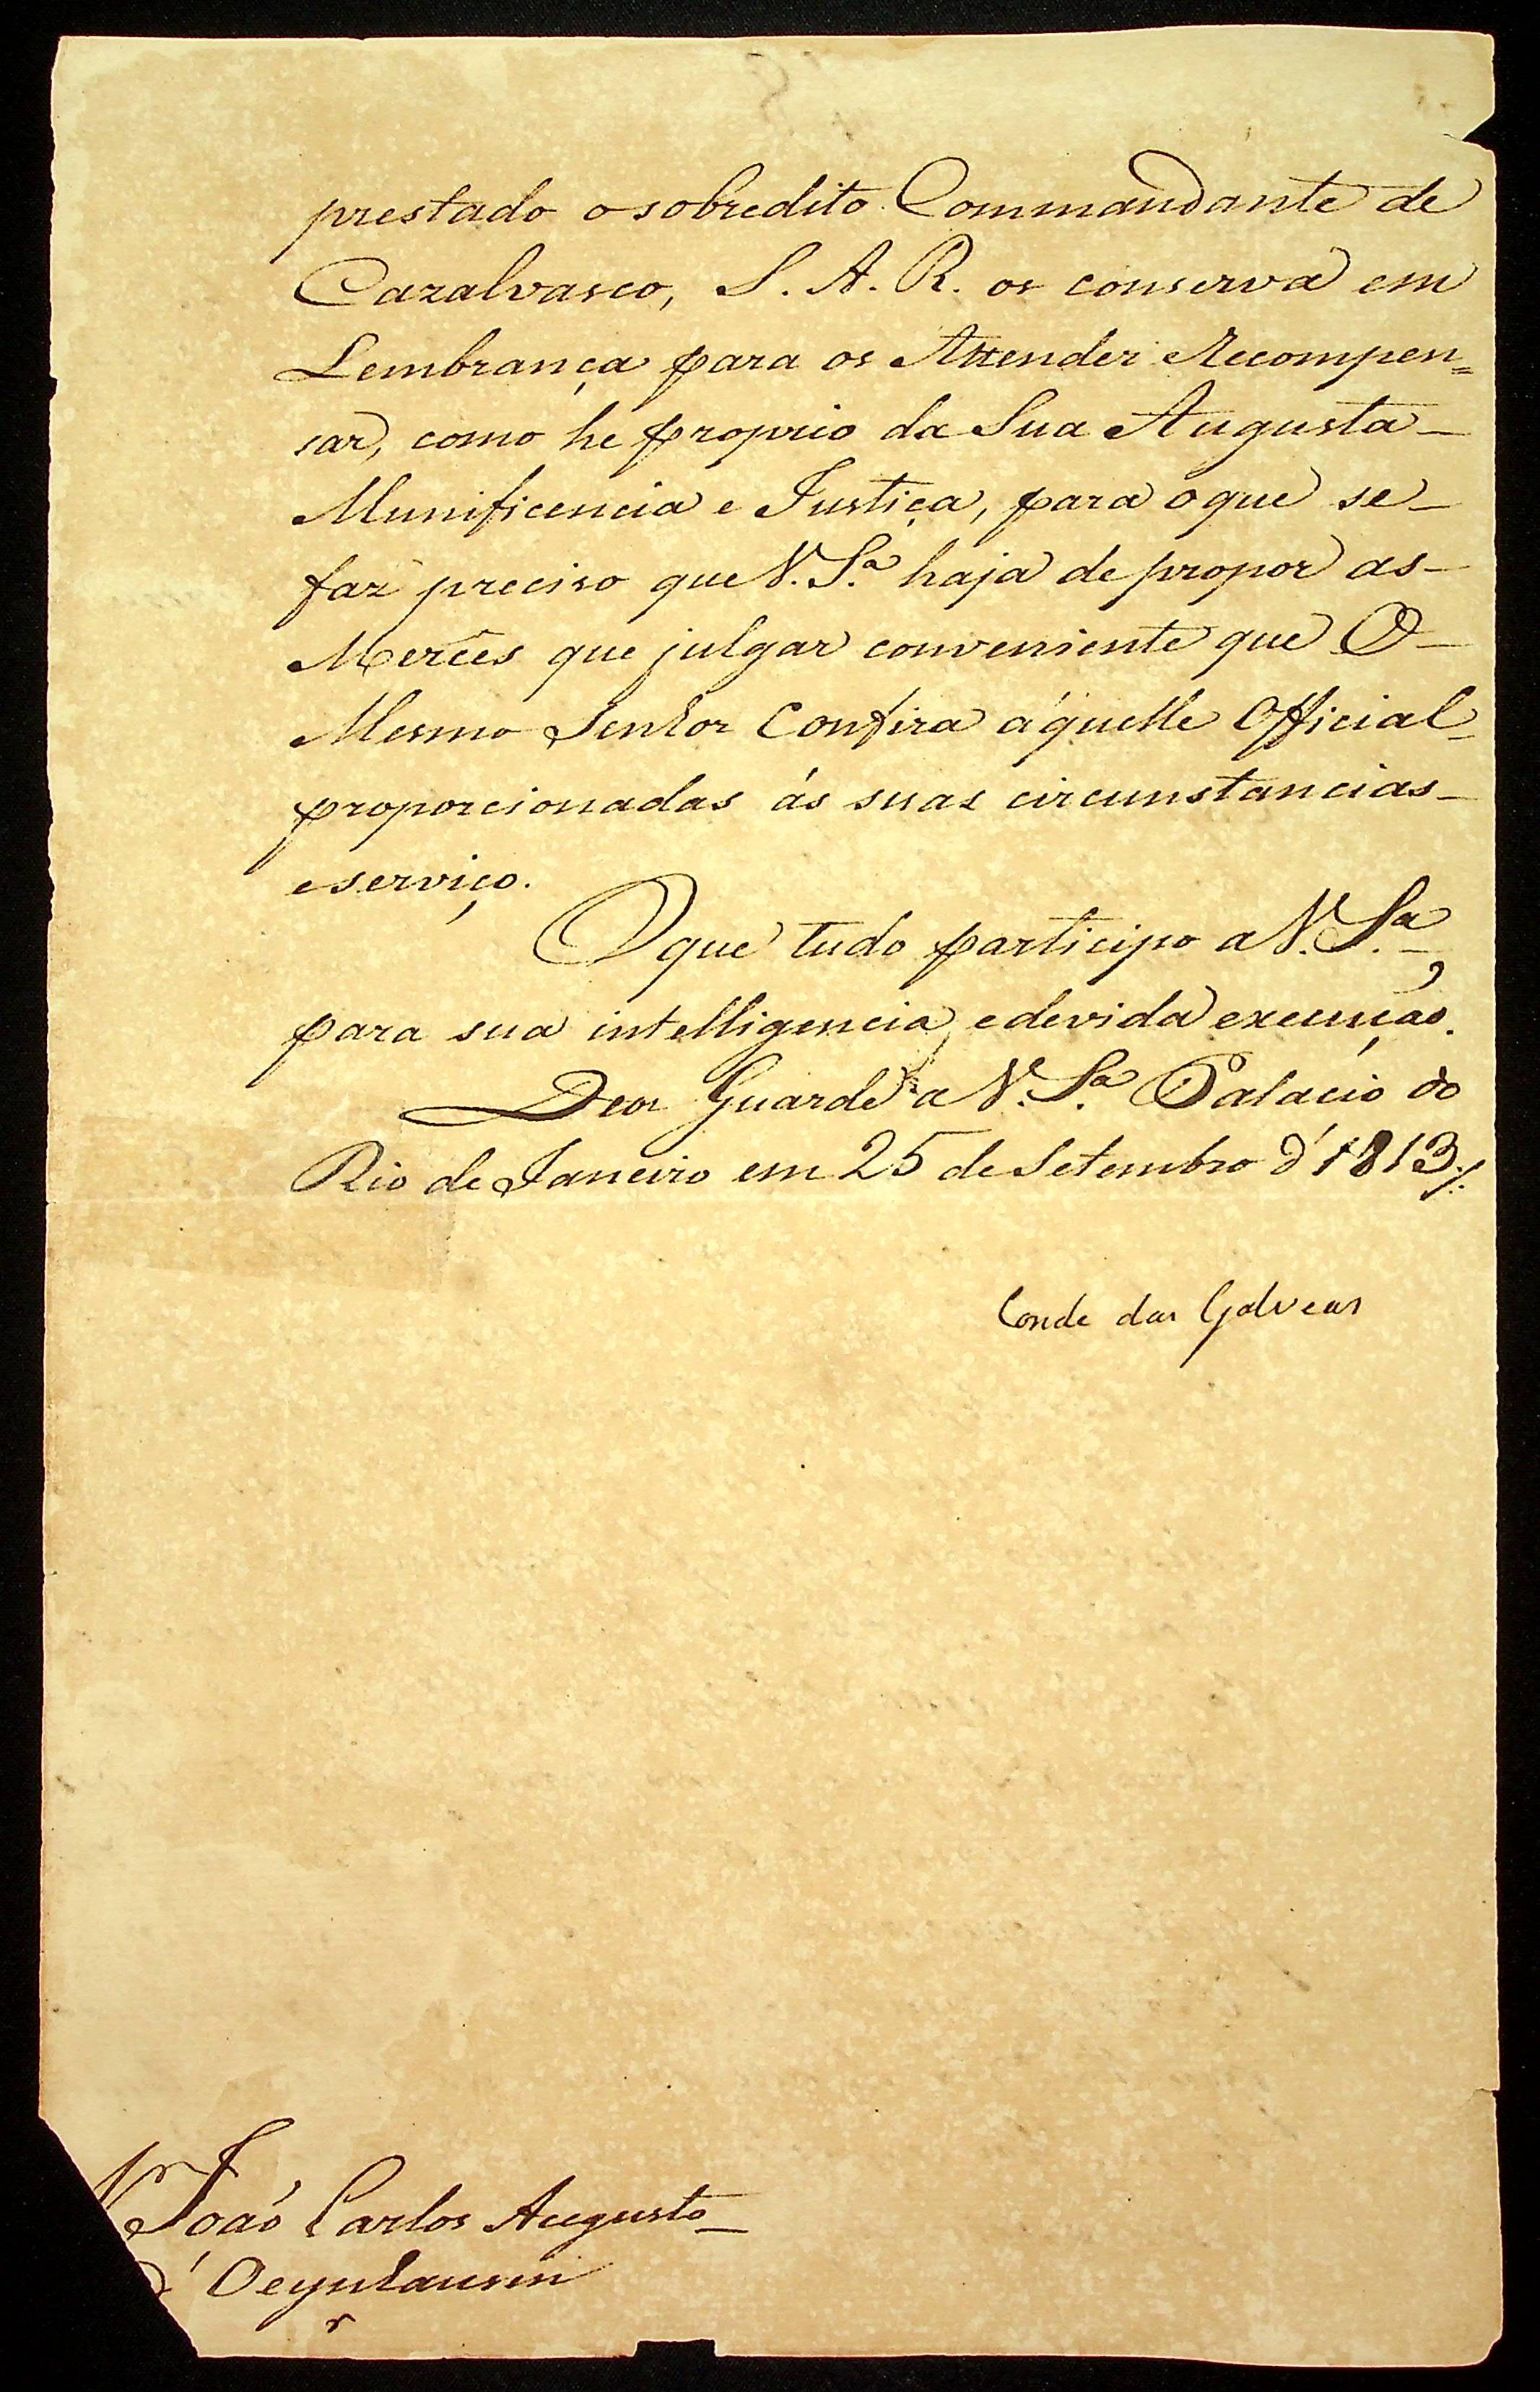 prestado o sobredito Commandante de
Cazalvasco, S. A. R. os conserva em
Lembrança para os Attender e Recompen=
sar, como he proprio da Sua Augusta_
Munificencia e Justiça, para o que se_
faz preciso que V. S.ª haja de propor as_
Mercês que julgar conveniente que O_
Mesmo Senhor Confira áquelle Official_
proporcionadas ás suas circunstancias_
e serviço.
O que tudo participo a V. S.ª
para sua intelligencia, e devida execução.
Deos Guarde a V. S.ª Palacio do
Rio de Janeiro em 25 de Setembro d'1813.
Conde das Galveas
João Carlos Augusto_
d'Oeynhausen